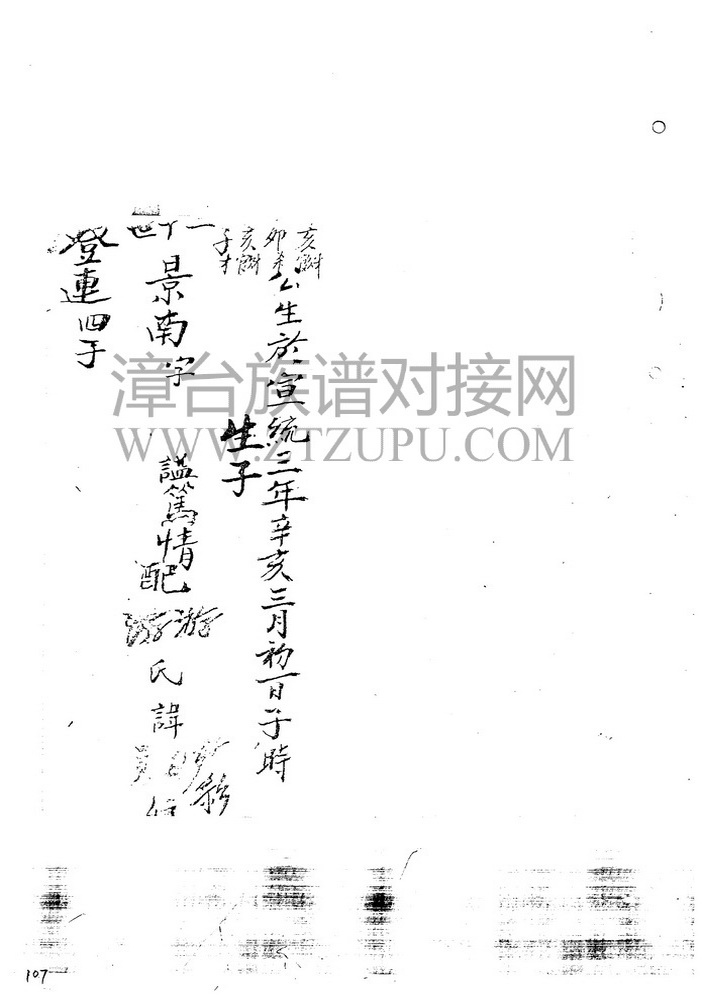 亥斛
卯弟
亥斛
子才
公生於宣統三年辛亥三月初一日子時
生子
一丁世
景南字
諡篤情配游氏諱
登連四子
漳台族谱对接网
WWW.ZTZUPU.COM
107